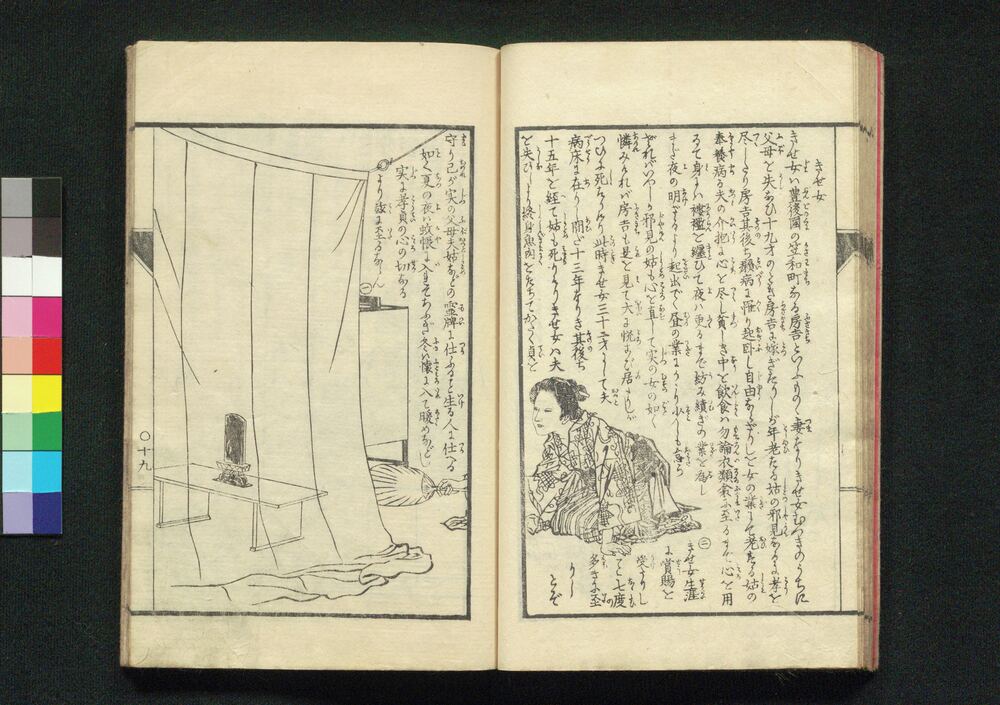 きせ女
きせ女ハ豊後国の笠和町なる房吉といふものゝ妻なりきせ女むつきのうちに
父母を失なひ十九才のとき房吉に嫁ぎたりしが年老たる姑の邪見なるに孝を
尽したり房吉其後ち癩病に罹り起臥し自由ならざりしを女の業にて老たる姑の
奉養病る夫の介抱に心を尽し貧しき中を飲食ハ勿論衣類に至るまで心を用
るて身には襤褸を纏ひて夜ハ更るまで紡み績ぎの業を為し
まだ夜の明ざるより起出でゝ昼の業にかゝり少しも怠ら
ざれバいやしき邪見の姑も心を直して実の女の如く
憐みけれバ房吉も是を見て大に悦こび居たりしが
つひに死なりけり此時きせ女三十才にして夫
病床に在りし間だ十三年なりき其後ち
十五年を経て姑も死りけりきせ女ハ夫
を失ひしより終身魚肉をたちてかたく貞を
㊁
きせ女生涯
に賞賜を
受けし
こと七度
の多きに至
りし
とぞ
守り己が実の父母夫姑などの霊牌に仕ふること生る人に仕へる
如く夏の夜ハ蚊帳に入れてもちふさぎ冬ハ懐に入て暖めなどし
実に孝貞の心の切なる
より茲に至るならん
㊀
〇十九